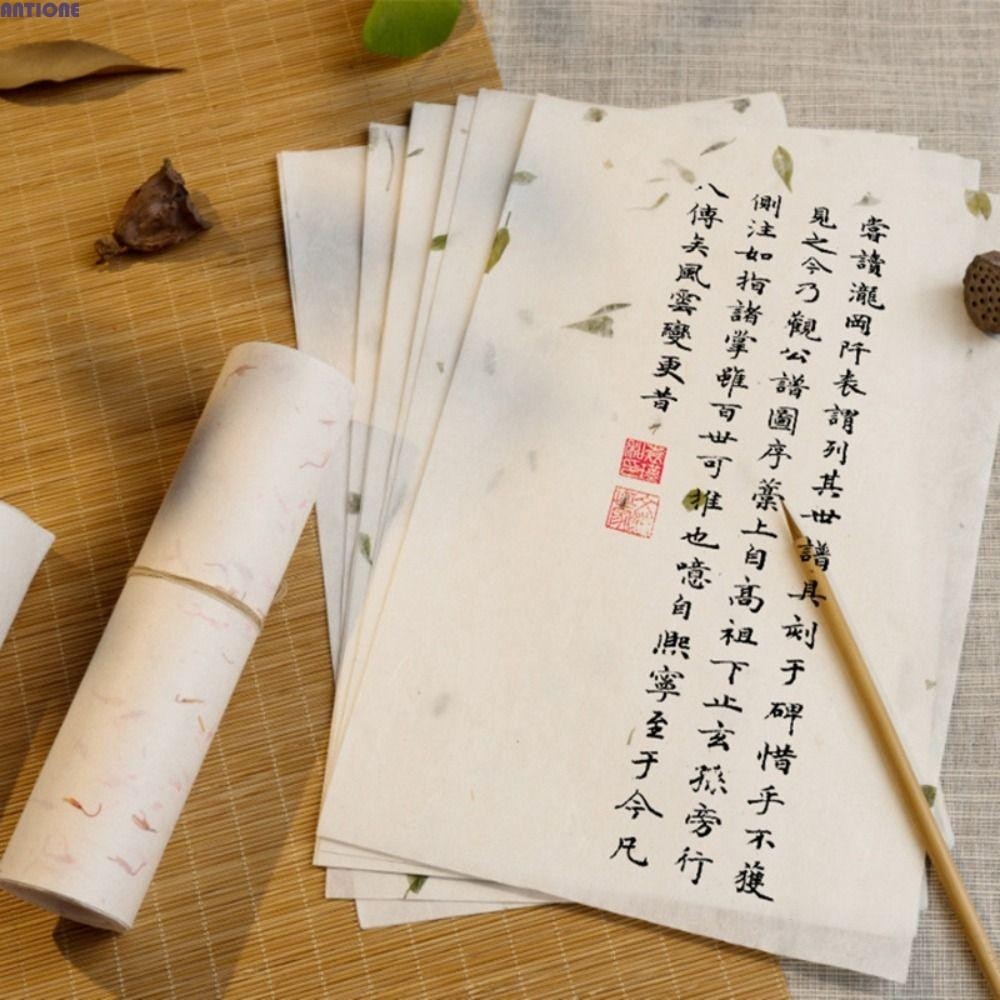 ANTIONE
嘗讀瀧岡阡表謂列其世譜具刻于碑惜乎不獲
見之今乃觀公譜圖序藁上自高祖下止玄孫旁行
側注如指諸掌雖百世可推也噫自熙寧至于今凡
八傳矣風雲變更昔